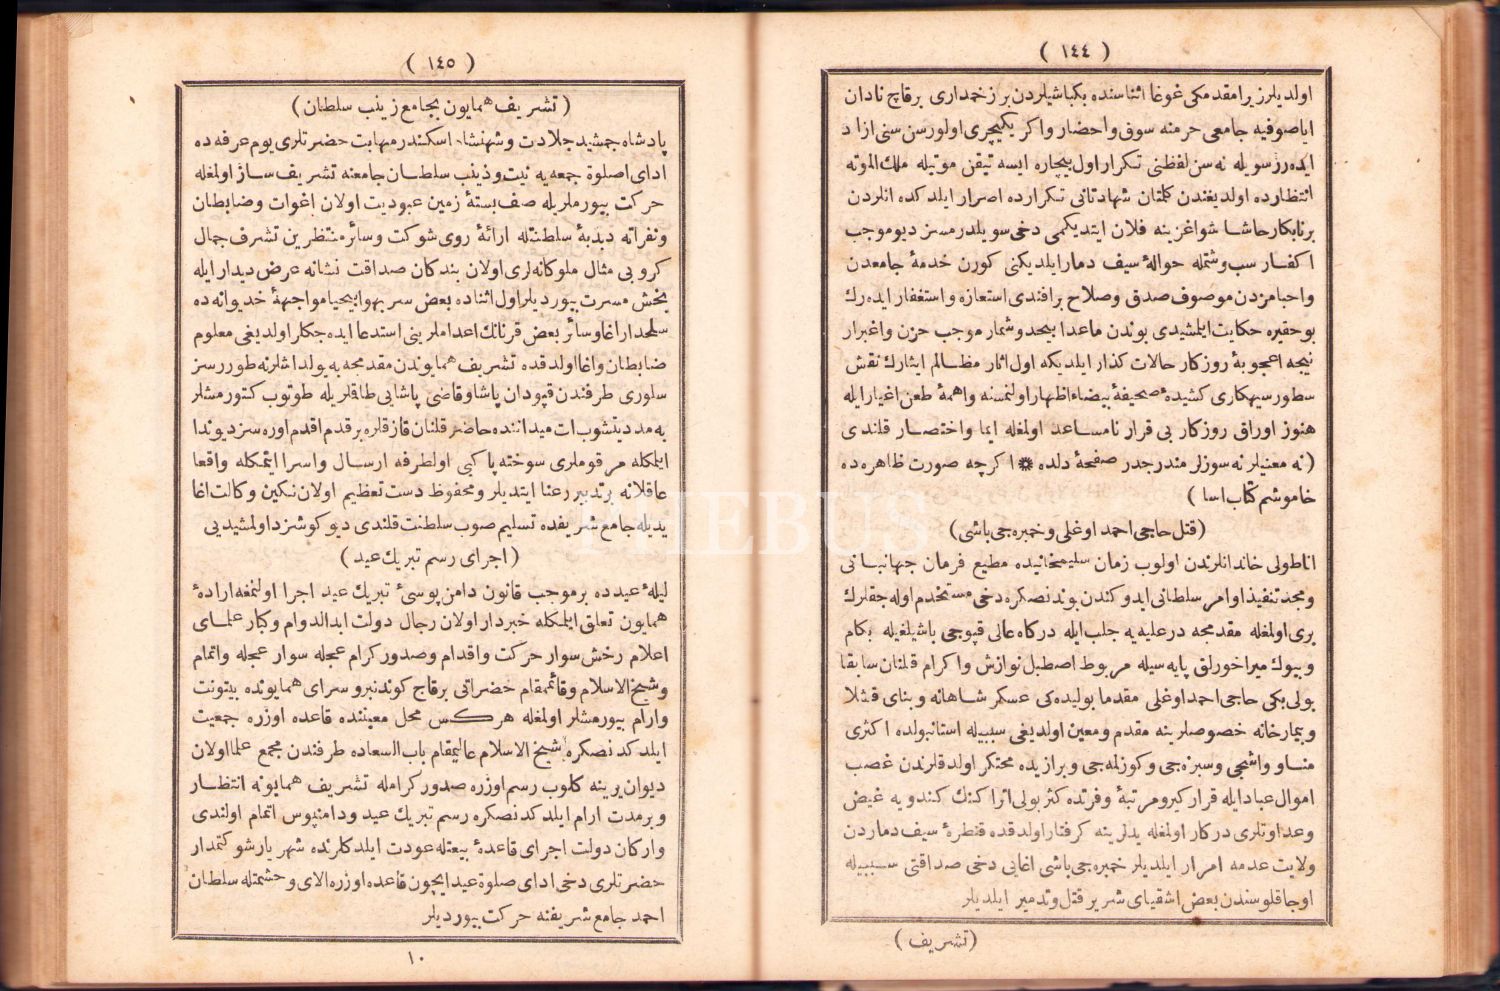 ( ١٤٤ )
اولديلر زيرا مقدمكى غوغا اثناسنده بكباشيلردن بر زخمدارى برقاچ نادان
اياصوفيه جامعى حرمنه سوق واحضار واكر يكيچرى اولورسن سنى ازاد
ايده رز سويله نه سن لفظنى تكرار اول بيچاره ايسه تيقن موتيله ملك الموته
انتظارده اولديغندن كلمتان شهادتانى تكرارده اصرار ايلدكده انلردن
برنابكار حاشا شواغزينه فلان ايتديكمى دخى سويلدرمسز ديو موجب
اكفار سب وشتمله حوالهٔ سيف دمار ايلديكنى كورن خدمهٔ جامعدن
واحبامزدن موصوف صدق وصلاح بر افندى استعاذه واستغفار ايده رك
بوحقيره حكايت ايلمشيدى بوندن ماعدا بيحد وشمار موجب حزن واغبرار
نيجه اعجوبهٔ روزكار حالات كذار ايلديكه اول اثار مظالم ايثارك نقش
سطور سيهكارى كشيدهٔ صحيفهٔ بيضاء اظهار اولنمسنه واهمهٔ طعن اغيار ايله
هنوز اوراق روزكار بى قرار نامساعد اولمغله ايما واختصار قلندى
( نه معنيلر نه سوزلر مندرجدر صفحهٔ دلده ❋ اكرچه صورت ظاهره ده
خاموشم كتاب اسا )
( قتل حاجى احمد اوغلى وخمبره جى باشى )
اناطولى خاندانلرندن اولوب زمان سليمخانيده مطيع فرمان جهانبانى
ومجد تنفيذ اوامر سلطانى ايدوكندن بوندنصكره دخى مستخدم اوله جقلرك
برى اولمغله مقدمجه درعليه يه جلب ايله دركاه عالى قپوجى باشيلغيله بكام
وبيوك ميراخورلق پايه سيله مربوط اصطبل نوازش واكرام قلنان سابقا
بولى بكى حاجى احمد اوغلى مقدما بوليده كى عسكر شاهانه وبناى قشلا
وبيمارخانه خصوصلرينه مقدم ومعين اولديغى سببيله استانبولده اكثرى
مناو واشجى وسبزه جى وكوزلمه جى وبرازيده محتكر اولدقلرندن غصب
اموال عباد ايله قرار كبرو مرتبهٔ وفرتده كثر بولى اتراكنك كندويه غيض
وعداوتلرى دركار اولمغله يدلرينه كرفتار اولدقده قنطرهٔ سيف دماردن
ولايت عدمه امرار ايلديلر خمبره جى باشى اغايى دخى صداقتى سببيله
اوجاقلوسندن بعض اشقياى شرير قتل وتدمير ايلديلر
( تشريف )
( ١٤٥ )
( تشريف همايون بجامع زينب سلطان )
پادشاه جمشيد جلادت وشهنشاه اسكندر مهابت حضرتلرى يوم عرفه ده
اداى اصلوة جمعه يه نيت وزينب سلطان جامعنه تشريف ساز اولمغله
حركت بيورملريله صف بستهٔ زمين عبوديت اولان اغوات وضابطان
ونفراته دبدبهٔ سلطنتله ارائهٔ روى شوكت وسائر منتظرين تشرف جمال
كروبى مثال ملوكانه لرى اولان بندكان صداقت نشانه عرض ديدار ايله
بخش مسرت بيورديلر اول اثناده بعض سربهوا بيحيا مواجههٔ خديوانه ده
سلحدار اغا وسائر بعض قرنانك اعداملرينى استدعا ايده جكلر اولديغى معلوم
ضابطان واغا اولدقده تشريف همايوندن مقدمجه يه يولداشلرنه طورر سز
سلورى طرفندن قپودان پاشا وقاضى پاشايى طاقلريله طوتوب كتورمشلر
يه مدديتشوب ات ميداننده حاضر قلنان قازقلره بر قدم اقدم اوره سز ديو ندا
ايلمكله مرقوملرى سوخته پاكبى اولطرفه ارسال واسرا ايتمكله واقعا
عاقلانه بر تدبير رعنا ايتديلر ومحفوظ دست تعظيم اولان نكين وكالت اغا
يديله جامع شريفده تسليم صوب سلطنت قلندى ديو كوشزد اولمشيديى
( اجراى رسم تبريك عيد )
ليلهٔ عيدده بر موجب قانون دامن پوسىٔ تبريك عيد اجرا اولنمغه ارادهٔ
همايون تعلق ايلمكله خبردار اولان رجال دولت ابد الدوام وكبار علماى
اعلام رخش سوار حركت واقدام وصدور كرام عجله سوار عجله واتمام
وشيخ الاسلام وقائممقام حضراتى برقاج كوندنبرو سراى همايونده بيتوتت
وارام بيورمشلر اولمغله هركس محل معيننده قاعده اوزره جمعيت
ايلدكدنصكره شيخ الاسلام عاليمقام باب السعاده طرفندن مجمع علما اولان
ديوان يرينه كلوب رسم اوزره صدور كرامله تشريف همايونه انتظار
وبرمدت ارام ايلدكدنصكره رسم تبريك عيد ودامنپوس اتمام اولندى
واركان دولت اجراى قاعدهٔ بيعتله عودت ايلدكلرنده شهريار شوكتمدار
حضرتلرى دخى اداى صلوة عيد ايچون قاعده اوزره الاى وحشمتله سلطان
احمد جامع شريفنه حركت بيورديلر
١٠
PHEBUS